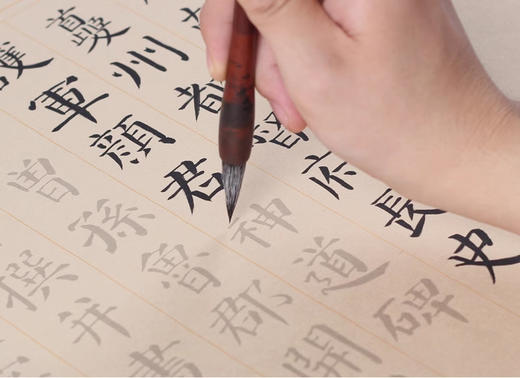 夔州都督府長史
護軍顏君神道碑
曾孫魯郡開
撰并書